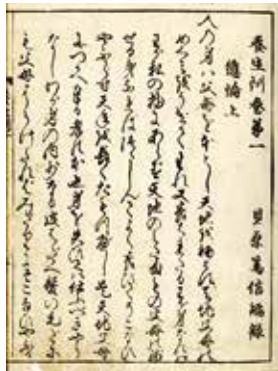 養生訓巻第一
總論上
貝原篤信編録
人の身ハ父母を本とし天地を初とす天地父母の
めぐみをうけて生れ又養はれたるわが身なれば
わが私の物にあらず天地のみたまもの父母の残
せる身なればつつしんでよく養ひてそこなひ
やぶらず天年を長くたもつべし是天地父母
につかへ奉る孝の本也身を失ひては仕ふべきやう
なしわが身の内少なる皮はだへ髪の毛だに
も父母にうけたればみだりにそこなひやぶ